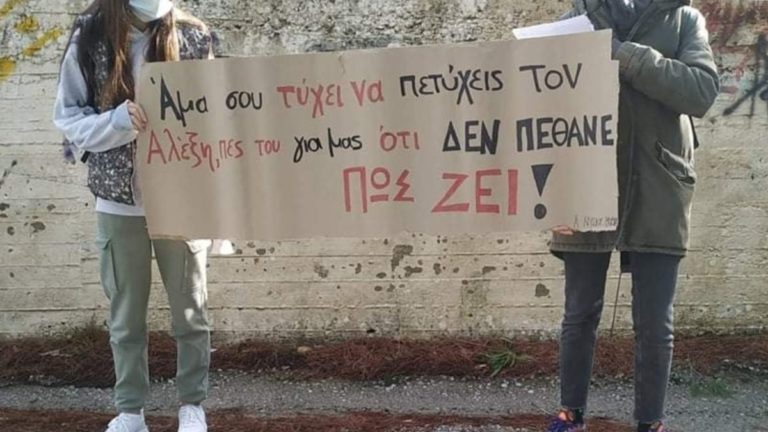 Άμα σου τύχει να πετύχεις τον
Αλέξη, πες του για μας ότι ΔΕΝ ΠΕΘΑΝΕ
ΠΩΣ ΖΕΙ!